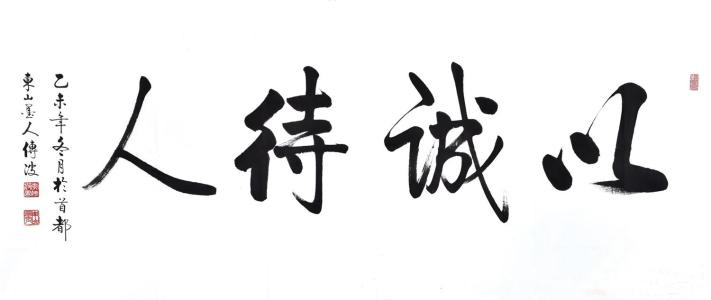 以誠待人
乙未年冬月於首都
東山墨人傳波